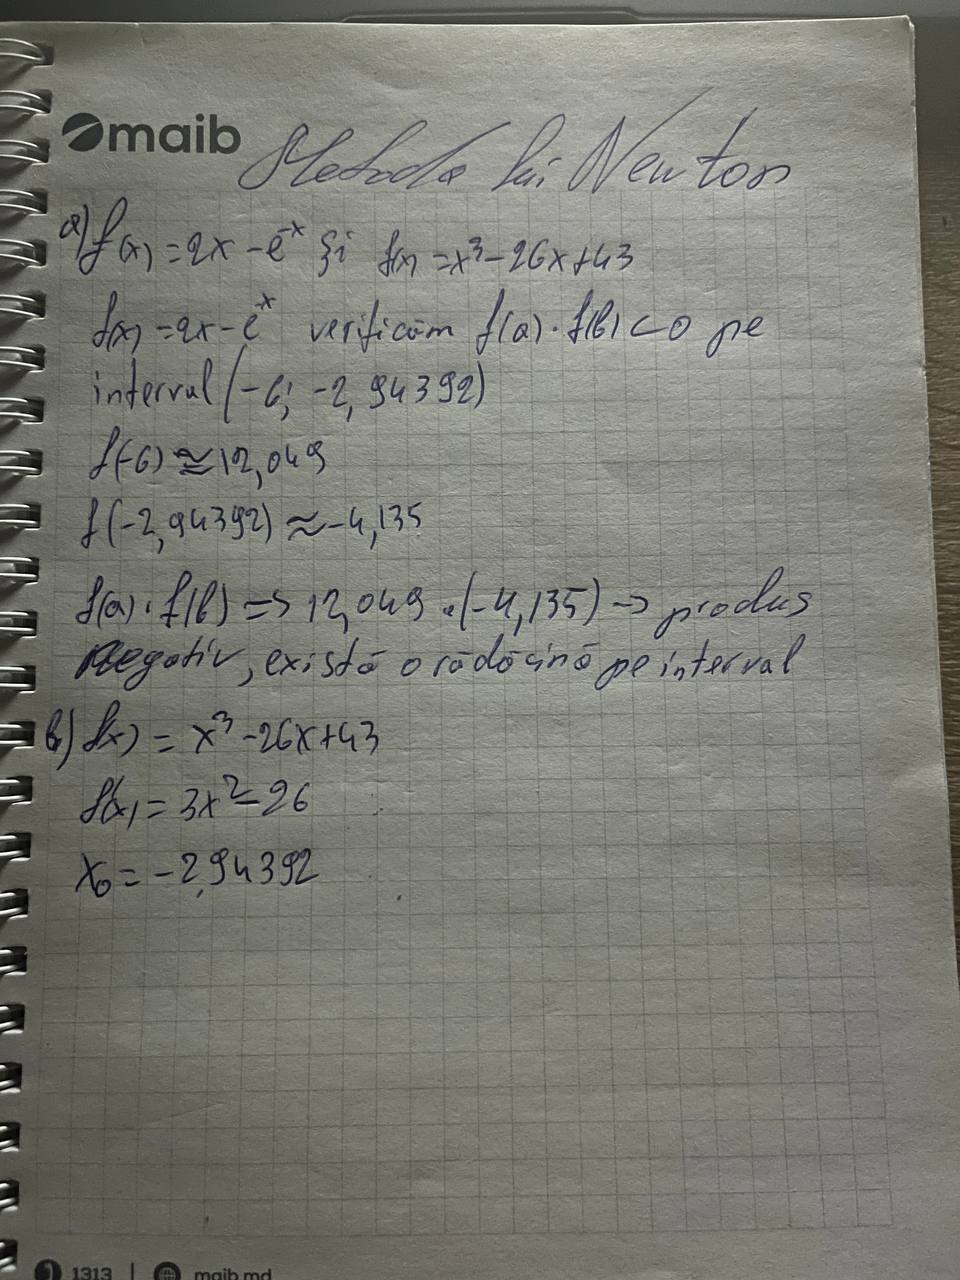 maib
Metoda lui Newton
a) f(x) = 2x - e^-x și f(x) = x³ - 26x + 43
f(x) = 2x - e^-x verificăm f(a) · f(b) < 0 pe
interval (-6; -2,94392)
f(-6) ≈ 12,049
f(-2,94392) ≈ -4,135
f(a) · f(b) => 12,049 · (-4,135) → produs
negativ, există o rădăcină pe interval
b) f(x) = x³ - 26x + 43
f'(x) = 3x² - 26
x₀ = -2,94392
1313 | maib.md